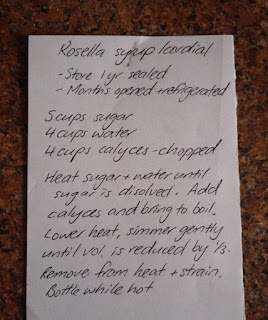 Rosella syrup/cordial
- Store 1 yr sealed
- Months opened + refrigerated
5 cups sugar
4 cups water
4 cups calyces - chopped
Heat sugar + water until
sugar is disolved. Add
calyces and bring to boil.
Lower heat, simmer gently
until vol. is reduced by 1/3.
Remove from heat + strain.
Bottle while hot